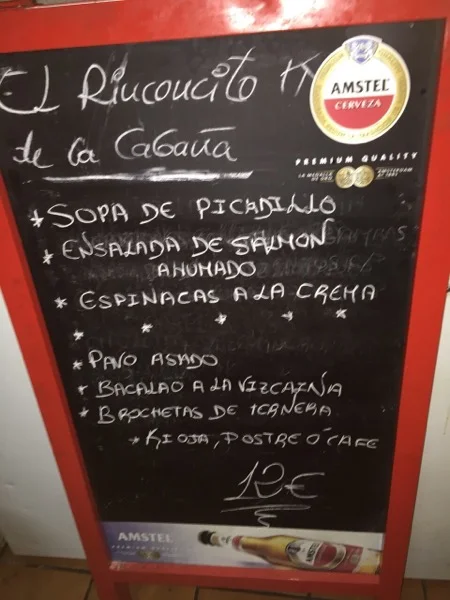 EL Rinconcito
de la Cabaña
AMSTEL
CERVEZA
PREMIUM QUALITY
* SOPA DE PICADILLO
* ENSALADA DE SALMON
AHUMADO
* ESPINACAS A LA CREMA
* * * * *
* PAVO ASADO
* BACALAO A LA VIZCAINA
* BROCHETAS DE TERNERA
* RIOJA, POSTRE Ó CAFE
12€
AMSTEL
PREMIUM QUALITY
AMSTEL